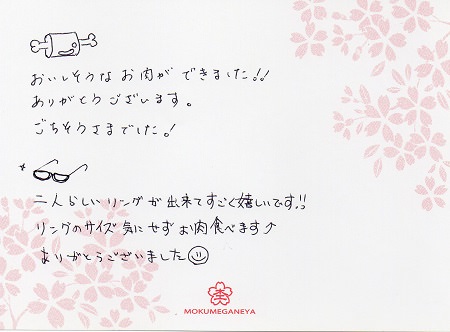 おいしそうなお肉ができました!!
ありがとうございます。
ごちそうさまでした!
二人らしいリングが出来てすごく嬉しいです!!
リングのサイズ気にせずお肉食べます↗
ありがとうございました
MOKUMEGANEYA